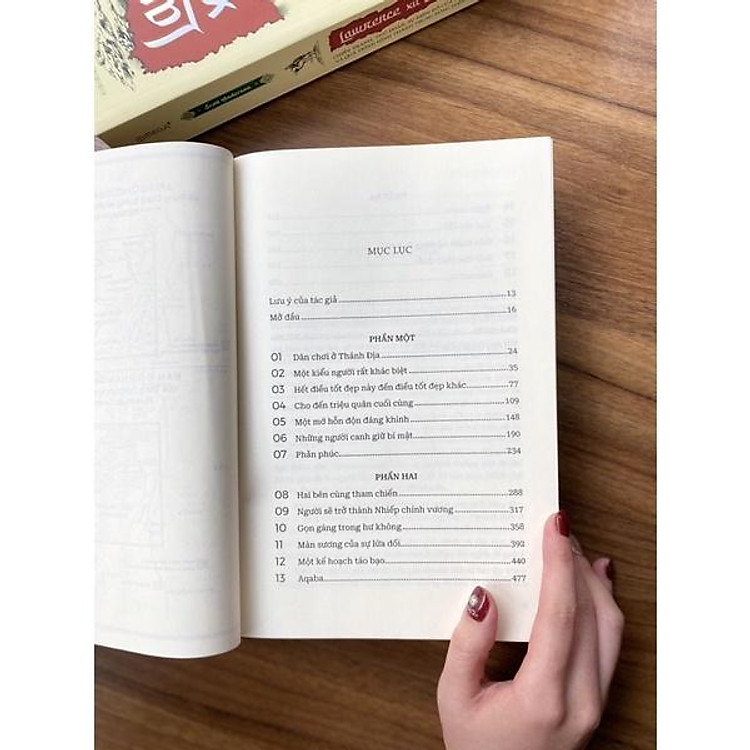 Lawrence xứ
Scott Anderson
MỤC LỤC
Lưu ý của tác giả 13
Mở đầu 16
PHẦN MỘT
01 Dân chơi ở Thánh Địa 24
02 Một kiểu người rất khác biệt 35
03 Hết điều tốt đẹp này đến điều tốt đẹp khác 77
04 Cho đến triệu quân cuối cùng 109
05 Một mớ hỗn độn đáng khinh 148
06 Những người canh giữ bí mật 190
07 Phản phúc 234
PHẦN HAI
08 Hai bên cùng tham chiến 288
09 Người sẽ trở thành Nhiếp chính vương 317
10 Gọn gàng trong hư không 358
11 Màn sương của sự lừa dối 392
12 Một kế hoạch táo bạo 440
13 Aqaba 477